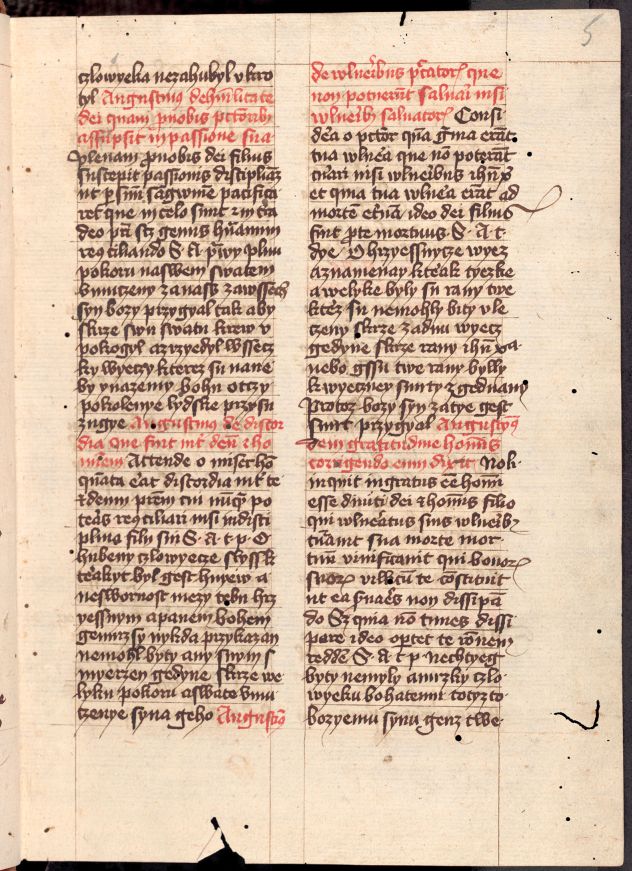 5
czlowyeka nezahubyl vkro
tyl Augustinus dehumilitate
dei quam pnobis pctorib
assupsit in passione sua
Plenam pnobis dei filius
suscepit passionis disciplina
ut p suum sagwine pacifica
ret que in celo sunt et in tra
deo pri scz genus humanum
recociliando S A prwy plnu
pokoru naswem swatem
vmuczeny zanass zawssech
syn bozy przygyal tak aby
skrze swu swatu krew v
pokogyl azrzyedyl wssecz
ky wyeczy kterez su nane
by ynazemy bohu otczy
pokolenye lydske przysu
zugye Augustinus de discor
dia que sint int deu et ho
minem Attende o miser ho
quata eat discordia int te
et deum prem tui nuq po
teas recociliari nisi indisci
plina filii sui S A t p O
hubeny czlowyecze slyss k
terakyt byl gest hnyew a
neswornost mezy tebu hrz
yessnym apanem bohem
genmzsy nykda przykazan
nemohl byty any swym s
myerzen gedyne skrze we
lyku pokoru aswate vmu
czenye syna geho Augusto
de wlneribus pctator que
non potuerunt saluari nisi
wlnerib saluator Consi
dea o pctor qua gma erat
tua wlnea que no poterat
curari nisi wlneribus ihu x
et quia tua wlnea erat ad
morte etna ideo dei filius
fuit p te mortuus S A t
dye O hrzyessnycze wyez
aznamenay kterak tyezke
awelyke byly su rany twe
kterz su nemohly bity v le
czeny skrze zadnu wyecz
gedyne skrze rany ihu xa
nebo gssu twe rany bylly
k wyeczney smrty zgednany
Protoz bozy syn zatye gest
smrt przygyal Augustus
dem gratitudine hominis
corrigendo eum dixit Noli
inquit ingratus ee homi
esse diuiti dei et hominis filio
qui wlneatus suis wlnerib
curauit sua morte mor
tuu viuificauit qui bonor
suor villicu te costituit
ut ea suaes non dissipa
do Sz quia no times dissi
pare ideo optet te ronem
redde S A t p nechtyeg
byty nemyly amrzky czlo
wyeku bohatemu totyzto
bozyemu synu genz twe